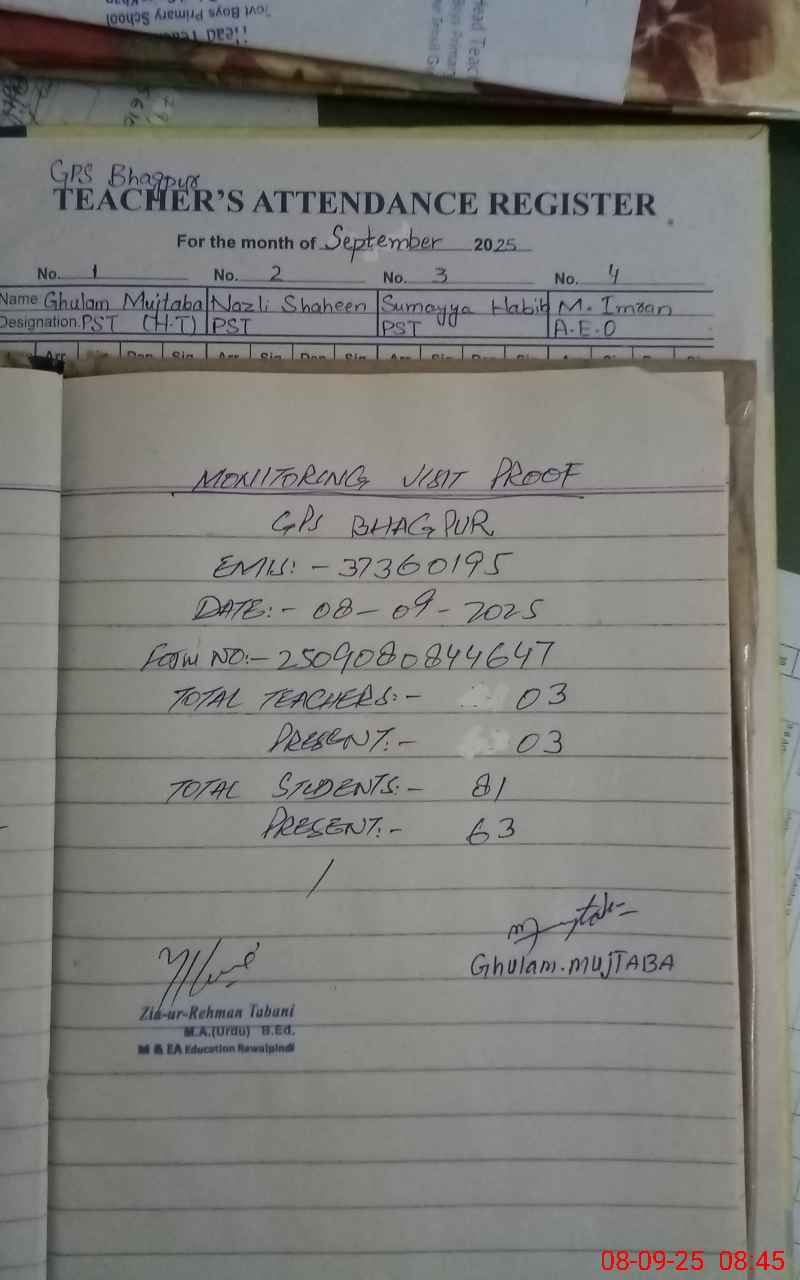 GPS Bhagpur
TEACHER'S ATTENDANCE REGISTER
For the month of September 2025
No. 1 No. 2 No. 3 No. 4
Name: Ghulam Mujtaba Nazli Shaheen Sumayya Habib M. Imran
Designation: PST (H.T) PST PST A.E.O
MONITORING VISIT PROOF
GPS BHAGPUR
EMIS:- 37360195
DATE:- 08-09-2025
Form NO:- 2509080844647
TOTAL TEACHERS:- 03
PRESENT:- 03
TOTAL STUDENTS:- 81
PRESENT:- 63
Ghulam.MUJTABA
Zia-ur-Rehman Tabani
M.A.(Urdu) B.Ed.
M & EA Education Rawalpindi
08-09-25 08:45